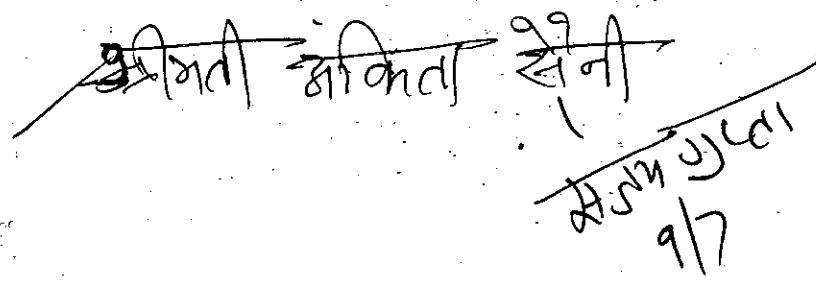 श्रीमती अंकिता सैनी
संजय गुप्ता
9/7